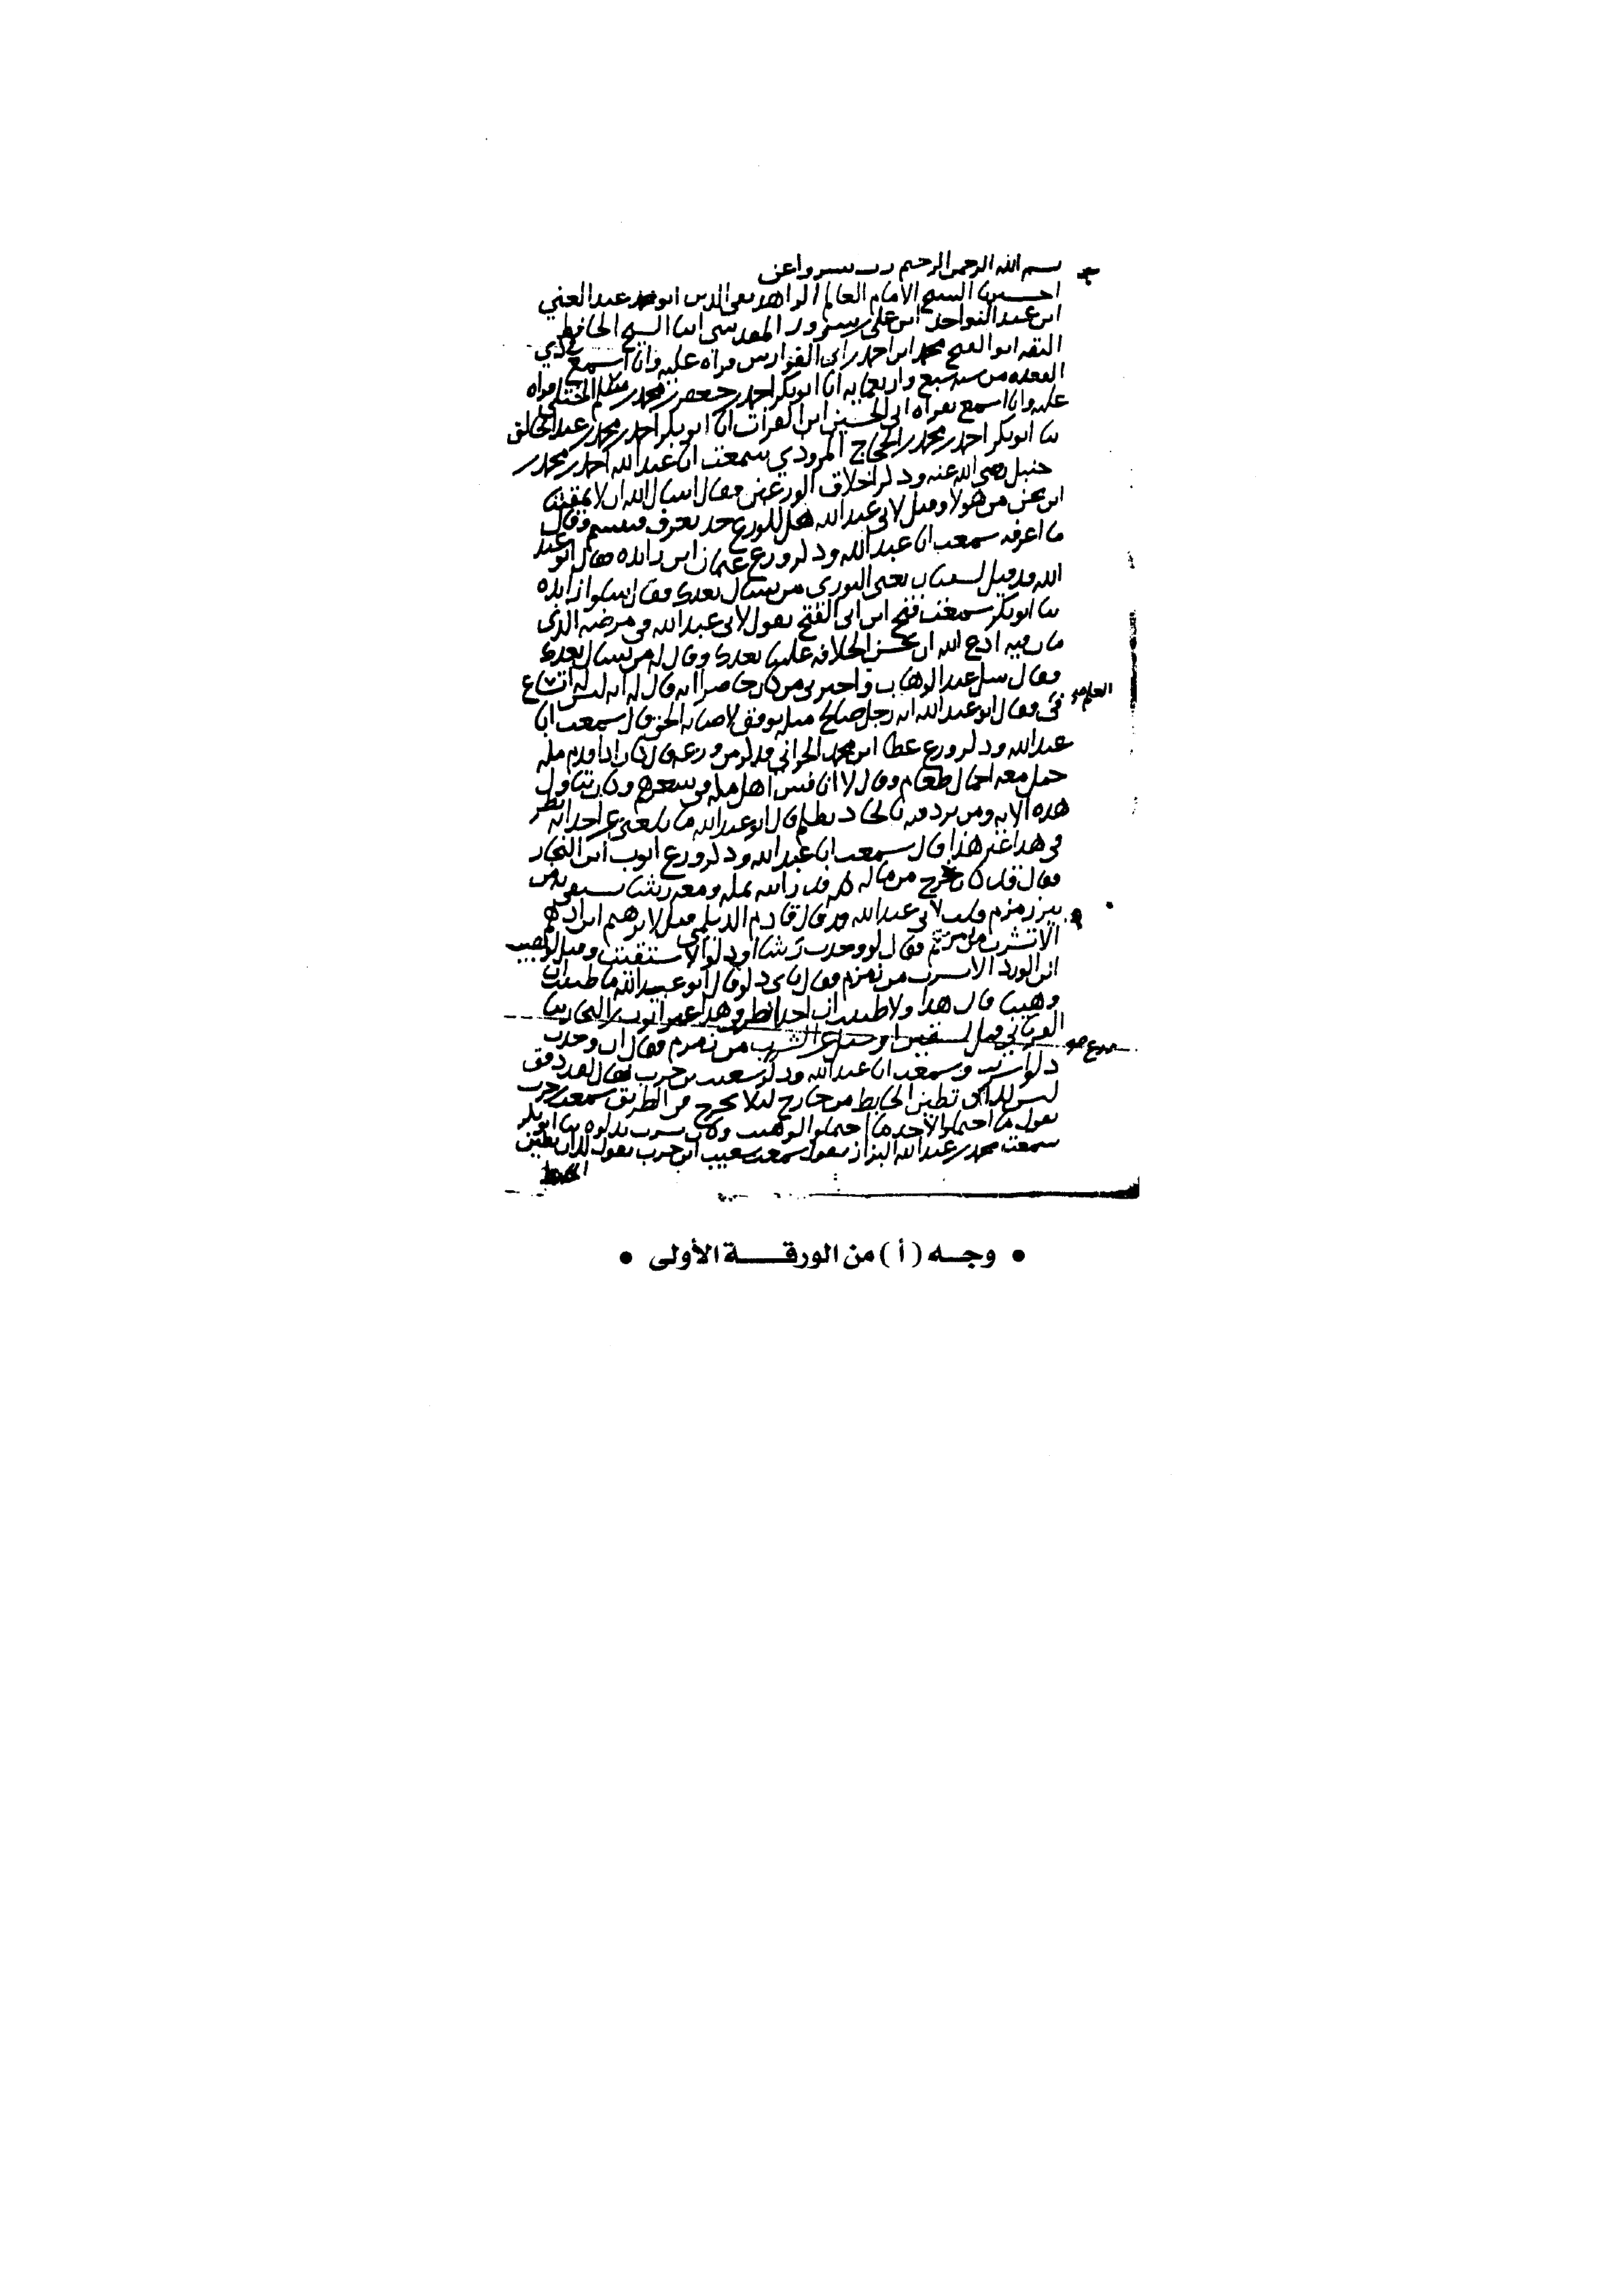 بسم الله الرحمن الرحيم رب يسر واعن
الشيخ الامام العالم الزاهد تقي الدين ابو محمد عبد الغني
ابن عبد الواحد ابن علي بن سرور المقدسي انبا الشيخ الحافظ
الثقه ابو الفتح محمد ابن احمد بن ابي الفوارس قراه عليه وانا اسمع في ذي
القعده من سنه سبع واربعمايه انا ابو بكر احمد بن جعفر بن محمد بن سلم الختلي قراه
عليه وانا اسمع بقراه ابي الحسن ابن الفرات انا ابو بكر احمد بن محمد بن عبد الخالق
ثنا ابو بكر احمد بن محمد بن الحجاج المروذي سمعت ابا عبد الله احمد بن محمد بن
حنبل رضي الله عنه وذكر اخلاق الورعين فقال اسال الله ان لا يمقتنا
اين نحن من هولا وقيل لابي عبد الله هل للورع حد يعرف فتبسم وقال
ما اعرفه سمعت ابا عبد الله وذكر ورع عثمان ابن زايده فقال ابو عبد
الله قد قيل لسفيان يعني الثوري من نسال بعدك فقال سلوا زايده
ثنا ابو بكر سمعت فتح ابن ابي الفتح يقول لابي عبد الله في مرضه الذي
مات فيه ادع الله ان يحسن الخلافه علينا بعدك وقال له من نسال بعدك
فقال سل عبد الوهاب واخبرني من كان حاضرا انه قال له انه ليس له اتساع
في العلم فقال ابو عبد الله انه رجل صالح مثله يوفق لاصابه الحق قال سمعت ابا
عبد الله وذكر ورع عطا ابن محمد الحراني فذكر من ورعه قال كان اذا قدم مكه
حمل معه احمال طعام وقال لا انافس اهل مكه في سعرهم وكان يتاول
هذه الايه ومن يرد فيه بالحاد بظلم قال ابو عبد الله ما بلغني عن احد انه نظر
في هذا غير هذا قال سمعت ابا عبد الله وذكر ورع ايوب ابن النجار
فقال قد كان خرج من ماله كله قد زايته بمكه ومعه رشا يستقي به من
بير زمزم قلت لابي عبد الله قد قال قادم الديلمي قيل لابرهيم ابن ادهم
الا تشرب من زمزم فقال لو وجدت رشا او دلوا لاستقيت وقيل لوهيب
ابن الورد الا تشرب من زمزم فقال باي دلو قال ابو عبد الله ما ظننت ان
وهيبا قال هذا ولا ظننت ان احدا نظر في هذا غير ايوب بن النجار ثنا
قيل لسفيان الشرب من زمزم فقال ان وجدت
دلوا وسمعت ابا عبد الله وذكر شعيب بن حرب فقال لقد دقق
ليس لك ان تطين الحايط من خارج ليلا يخرج في الطريق سمعت
يقول ما احتملوا لاحد ما احتملوا لوهيب وكان يشرب بدلوه ثنا ابو بكر
سمعت محمد بن عبد الله البزاز يقول سمعت شعيب ابن حرب يقول لك ان تطين
الحايط
• وجــه (أ) من الورقــــة الأولى •